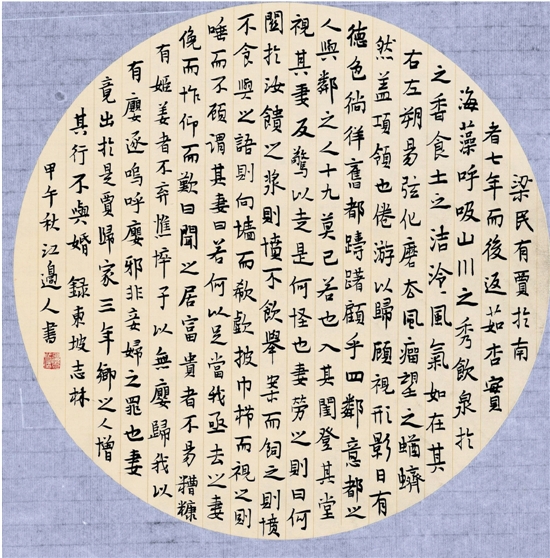 梁民有賈於南
者七年而後返茹杏實
海藻呼吸山川之秀飲泉於
之香食土之洁泠風氣如在其
右左朔易弦化磨去風瘤望之蝤蠐
然盖項領也倦游以歸顧視形影日有
德色徜徉舊都躊躇顧乎四鄰意都之
人與鄰之人十九莫己若也入其閨登其堂
視其妻反驚以走是何怪也妻勞之則曰何
關於汝饋之漿則憤不飲舉案而飼之則憤
不食與之語則向墻而欷歔披巾櫛而視之則
唾而不顧謂其妻曰若何以足當我亟去之妻
俛而怍仰而歎曰聞之居富貴者不易糟糠
有姬姜者不弃憔悴子以無癭歸我以
有癭逐嗚呼癭邪非妾婦之罪也妻
竟出於是賈歸家三年鄉之人憎
其行不與婚 錄東坡志林
甲午秋江邊人書